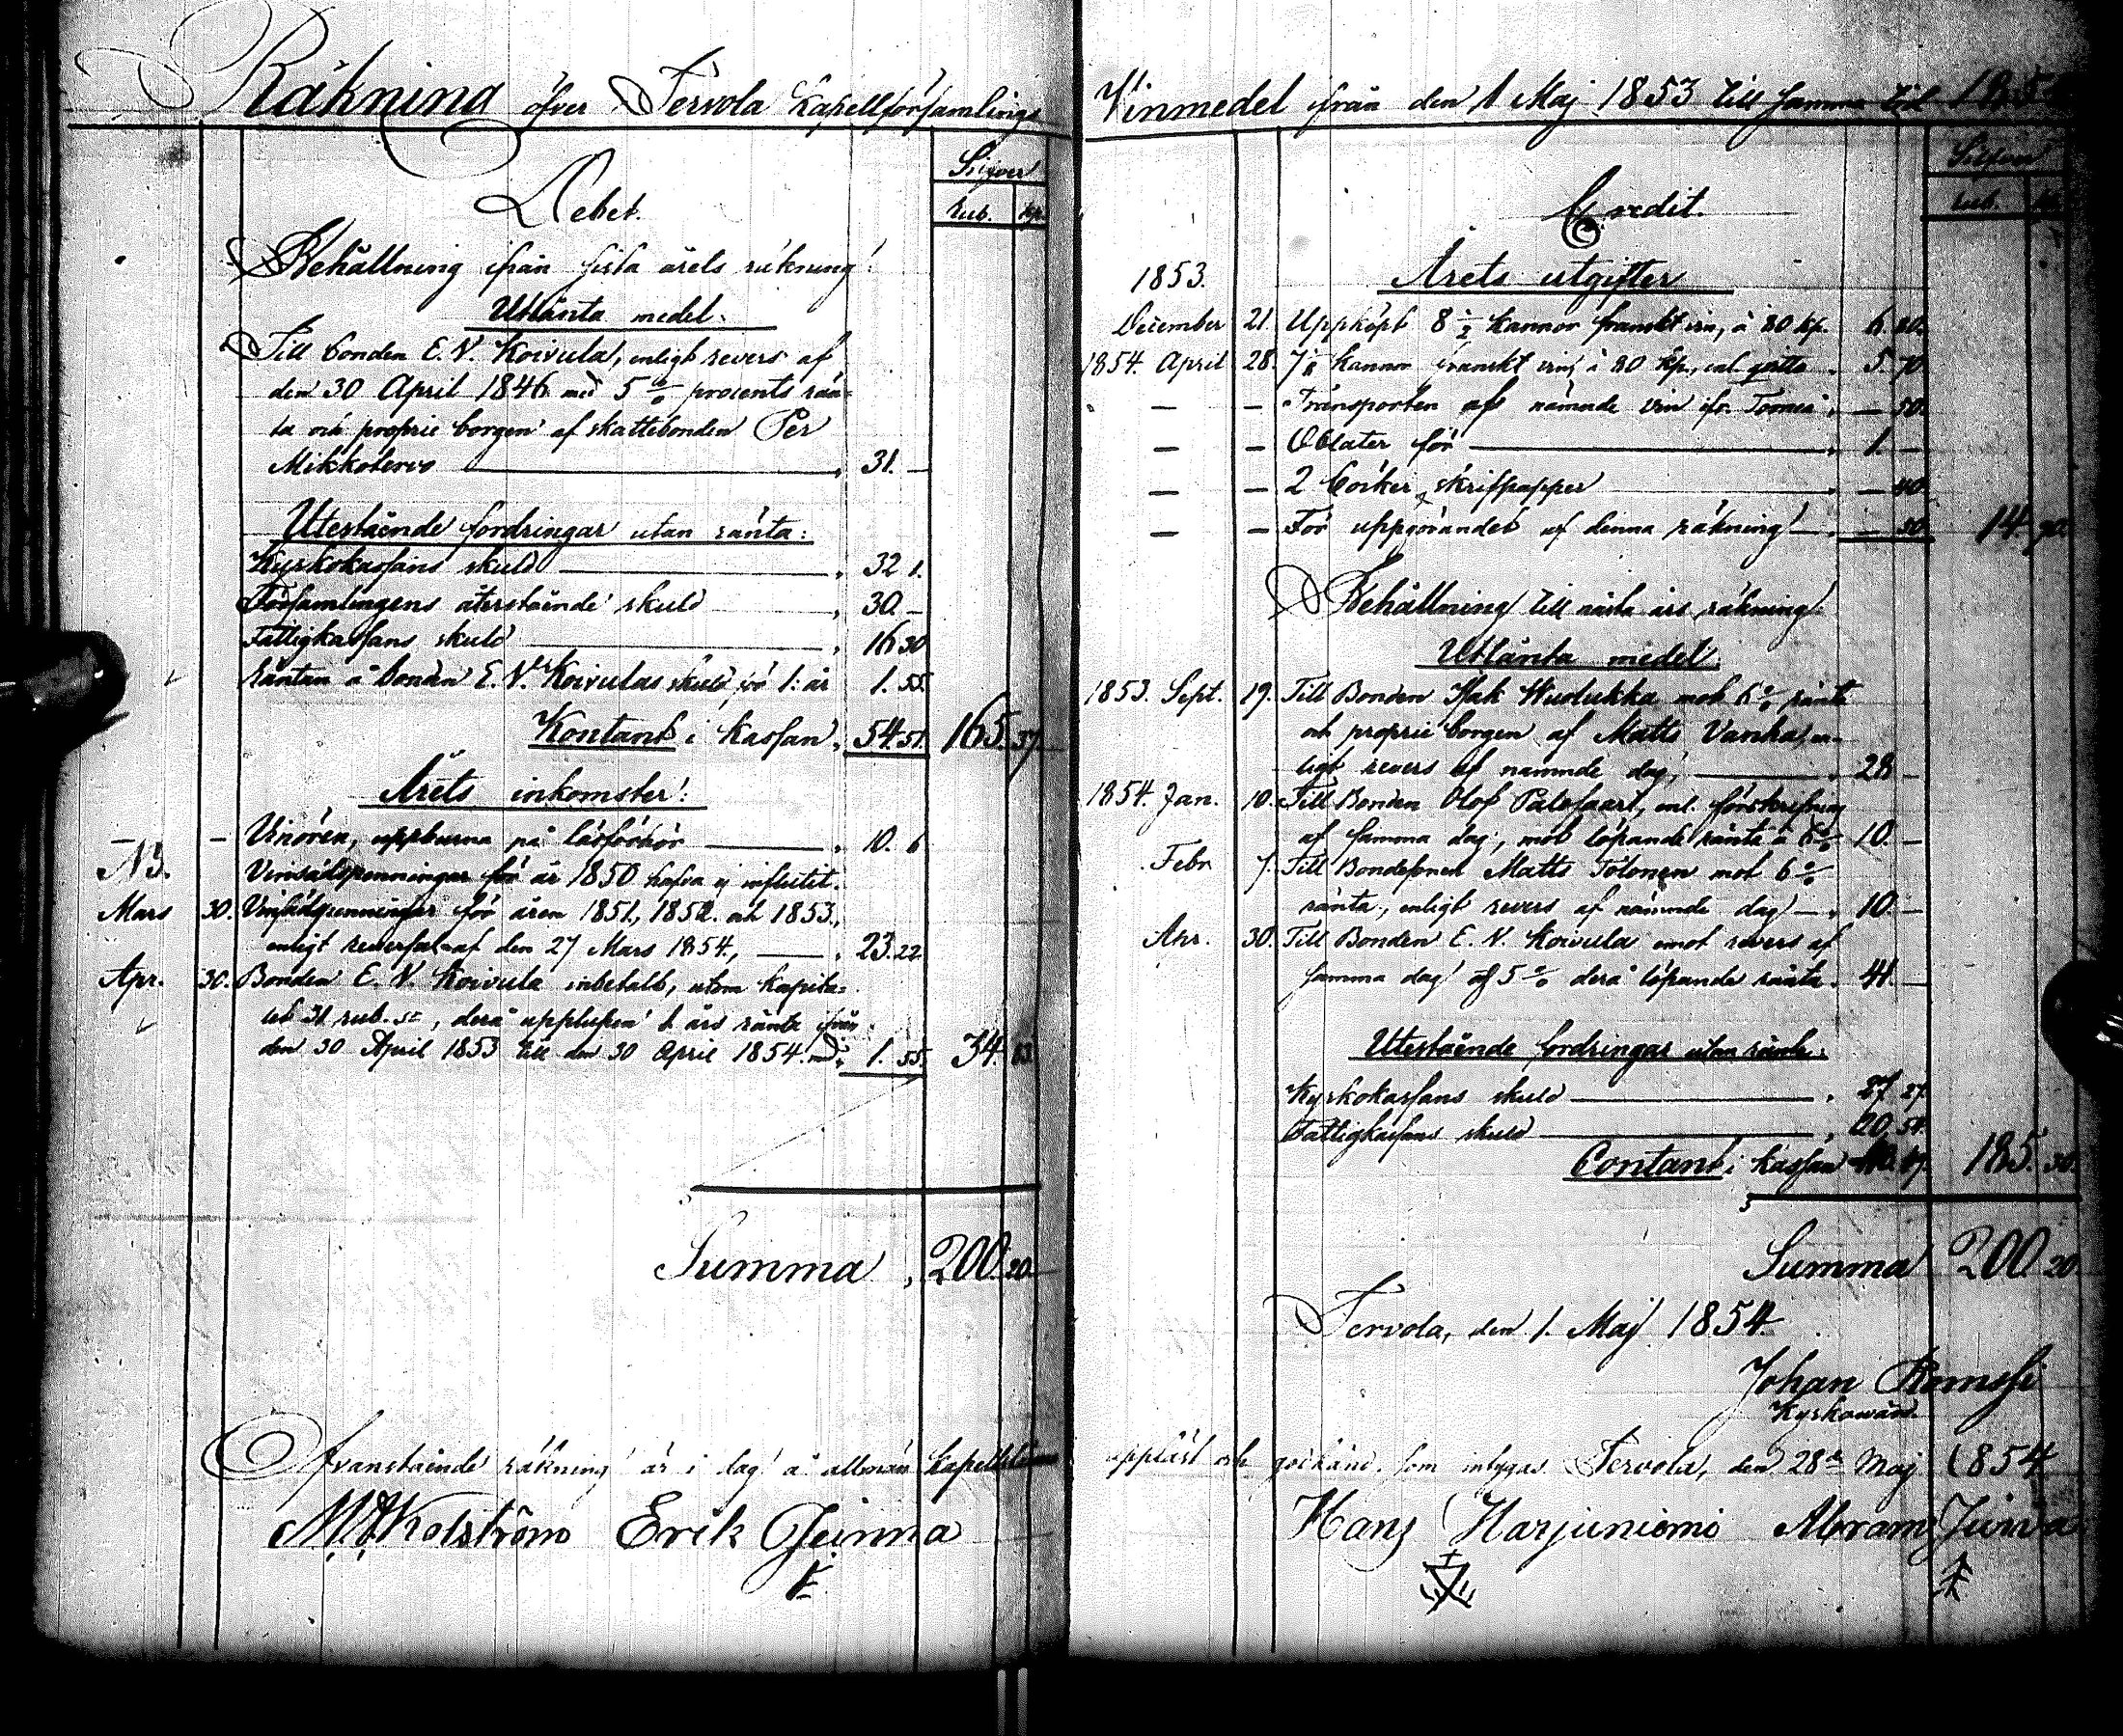 Räkning öfver Tervola Kapellförsamlings
Silfver
Debet.
Rub. kp.
Behållning ifrån sista årets räkning:
Utlånta medel.
Till bonden E. N. Koivula, enligt revers af
den 30 April 1846 med 5 % procents rän-
ta och proprie borgen af skattebonden Per
Mikkotervo 31. —
Utestående fordringar utan ränta:
Kyrkokassans skuld 32 1.
Församlingens återstående skuld 30. —
Fattigkassans skuld 16 30
Räntan å bonden E. N. Koivulas skuld för 1: år 1. 55.
Kontant i kassan 54. 51. 165. 37.
Årets inkomster:
— Vinören, uppburna på läsförhör 10. 6
Vinsädspenningar för år 1850 hafva ej influtit.
Mars 30. Vinsädspenningar för åren 1851, 1852. och 1853.,
enligt reversal af den 27 Mars 1854., 23. 22.
Apr. 30. Bonden E. N. Koivula inbetalt, utom kapita-
let 31 rub. sr, derå upplupen 1 års ränta ifrån
den 30 April 1853 till den 30 April 1854. med 1. 55. 34. 83.
Summa 200. 20
Vinmedel ifrån den 1 Maj 1853 till samma tid
Silfver
Credit.
Rub.
1853. Årets utgifter
December 21. Uppköpt 8 ½ kannor franskt vin, à 80 kp. 6. 80.
1854. April 28. 7 ⅛ kannor franskt vin à 80 kp., enl. qvitto 5. 70.
— — Transporten af nämnde vin ifr. Torneå — 50.
— — Oblater för 1. —
— — 2 böcker skrifpapper — 40.
— — För uppgörandet af denna räkning — 50. 14. 90.
Behållning till nästa års räkning:
Utlånta medel.
1853. Sept. 19. Till Bonden Isak Wuolukka mot 6 % ränta
och proprie borgen af Matts Vanha, en-
ligt revers af nämnde dag, 28 —
1854. Jan. 10. Till Bonden Olof Palosaari, enl. förskrifning
af samma dag, mot löpande ränta à 6 % 10. —
Febr 7. Till Bondesonen Matts Tolonen mot 6 %
ränta, enligt revers af nämnde dag 10. —
Apr. 30. Till Bonden E. N. Koivula emot revers af
samma dag af 5 % derå löpande ränta 41. —
Utestående fordringar utan ränta:
Kyrkokassans skuld 27 27.
Fattigkassans skuld 20. 54.
Contant i kassan 185. 30.
Summa 200 20
Tervola, den 1. Maj 1854.
Johan Romssi
Kyrkovärd.
Ofvanstående räkning är i dag å allmän Kapellstämma uppläst och godkänd. Som intygas Tervola, den 28de Maj 1854
Erik Jeinna Hans Harjuniemi Abram